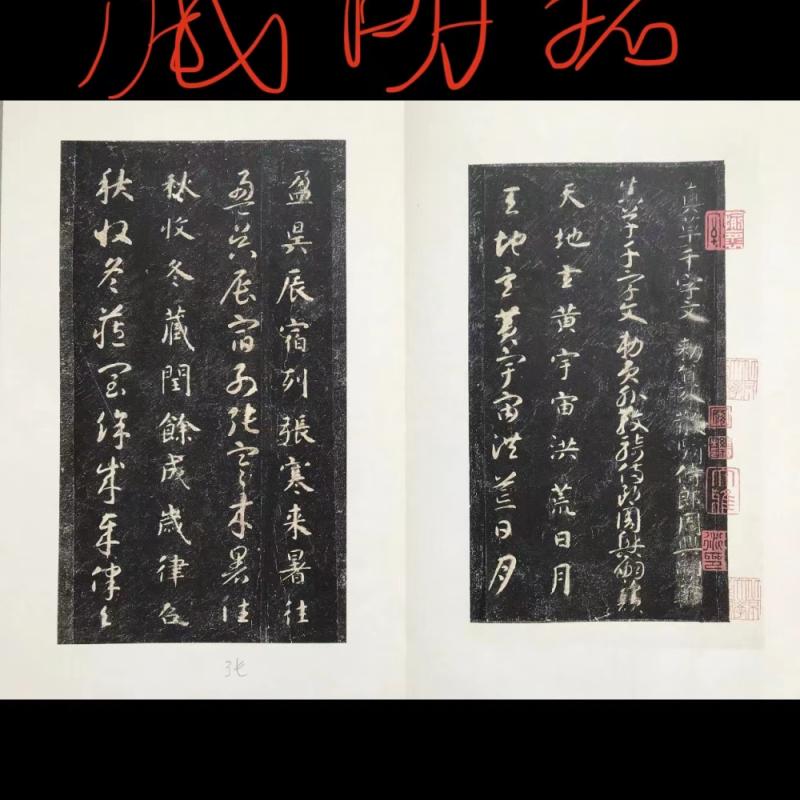 藏明拓
真草千字文 勅員外散騎侍郎周興嗣次韻
真草千字文勅員外散騎侍郎周興嗣次韻
天地玄黄宇宙洪荒日月
天地玄黄宇宙洪荒日月
盈昃辰宿列張寒来暑往
盈昃辰宿列張寒来暑往
秋收冬藏閏餘成歲律吕
秋收冬藏閏餘成歲律吕
张